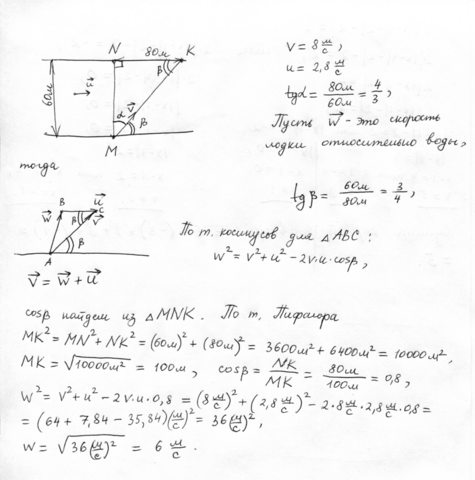 N 80м K
β
60м
u⃗
v⃗
α β
M
v = 8 м/с,
u = 2,8 м/с
tgα = 80м/60м = 4/3,
Пусть w⃗ - это скорость
лодки относительно воды,
тогда
tgβ = 60м/80м = 3/4,
B u⃗ C
w⃗ β v⃗
β
A
v⃗ = w⃗ + u⃗
По т. косинусов для △ABC:
w² = v² + u² - 2v·u·cosβ,
cosβ найдем из △MNK. По т. Пифагора
MK² = MN² + NK² = (60м)² + (80м)² = 3600м² + 6400м² = 10000м²,
MK = √10000м² = 100м, cosβ = NK/MK = 80м/100м = 0,8,
w² = v² + u² - 2v·u·0,8 = (8 м/с)² + (2,8 м/с)² - 2·8 м/с·2,8 м/с·0,8 =
= (64 + 7,84 - 35,84)(м/с)² = 36(м/с)²,
w = √36(м/с)² = 6 м/с.